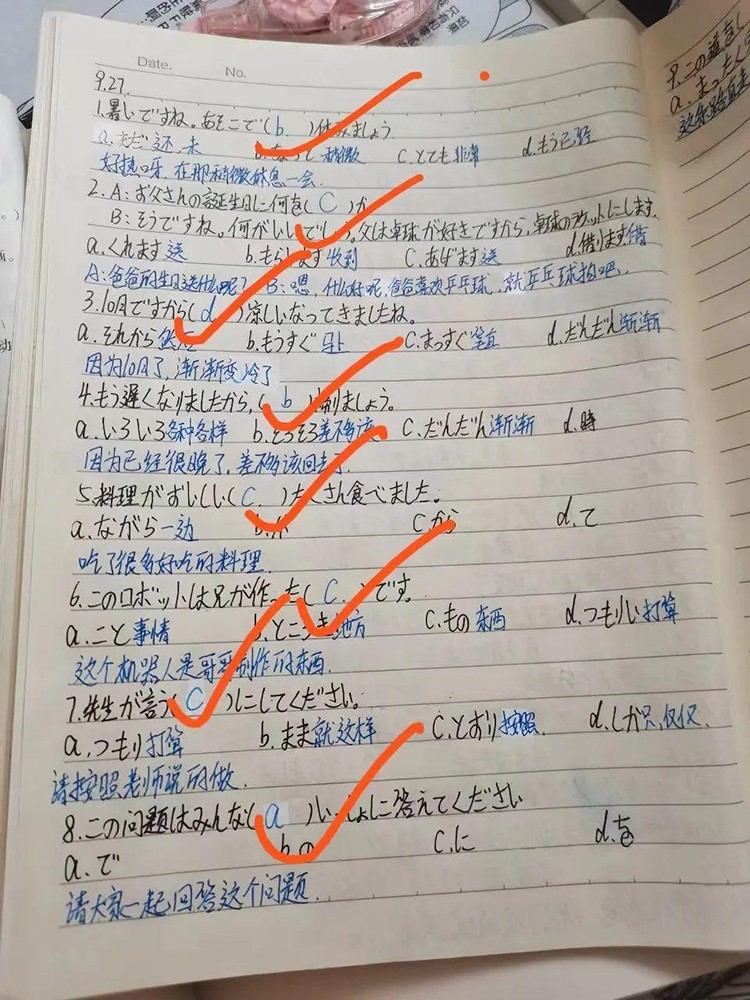 Date. No.
9.27.
1.暑いですね。あそこで( b )休みましょう
a.まだ 还、未 b.ちょっと 稍微 c.とても 非常 d.もう 已经
好热呀,在那稍微休息一会.
2.A:お父さんの誕生日に何を( C )か
B:そうですね。何がいいでしょう。父は卓球が好きですから,卓球のラケットにします.
a.くれます 送 b.もらいます 收到 C.あげます 送 d.借ります 借
A:爸爸的生日送什么呢? B:嗯,什么好呢,爸爸喜欢乒乓球,就乒乓球拍吧.
3.10月ですから( d )涼しいなってきましたね。
a.それから 然后 b.もうすぐ 马上 C.まっすぐ 笔直 d.だんだん 渐渐
因为10月了,渐渐变冷了
4.もう遅くなりましたから,( b )帰りましょう。
a.いろいろ 各种各样 b.そろそろ 差不多该 C.だんだん 渐渐 d.時
因为已经很晚了,差不多该回去了.
5.料理がおいしい( C. )たくさん食べました。
a.ながら 一边 C.から d.て
吃了很多好吃的料理.
6.このロボットは兄が作った( C. )です。
a.こと 事情 b.ところ 地方 C.もの 东西 d.つもりい 打算
这个机器人是哥哥制作的东西.
7.先生が言う( C )にしてください。
a.つもり 打算 b.まま 就这样 C.とおり 按照. d.しか 只,仅仅.
请按照老师说的做.
8.この問題はみんな( a )いっしょに答えてください
a.で b.の C.に d.を
请大家一起回答这个问题.
9.この道をし
a.まった